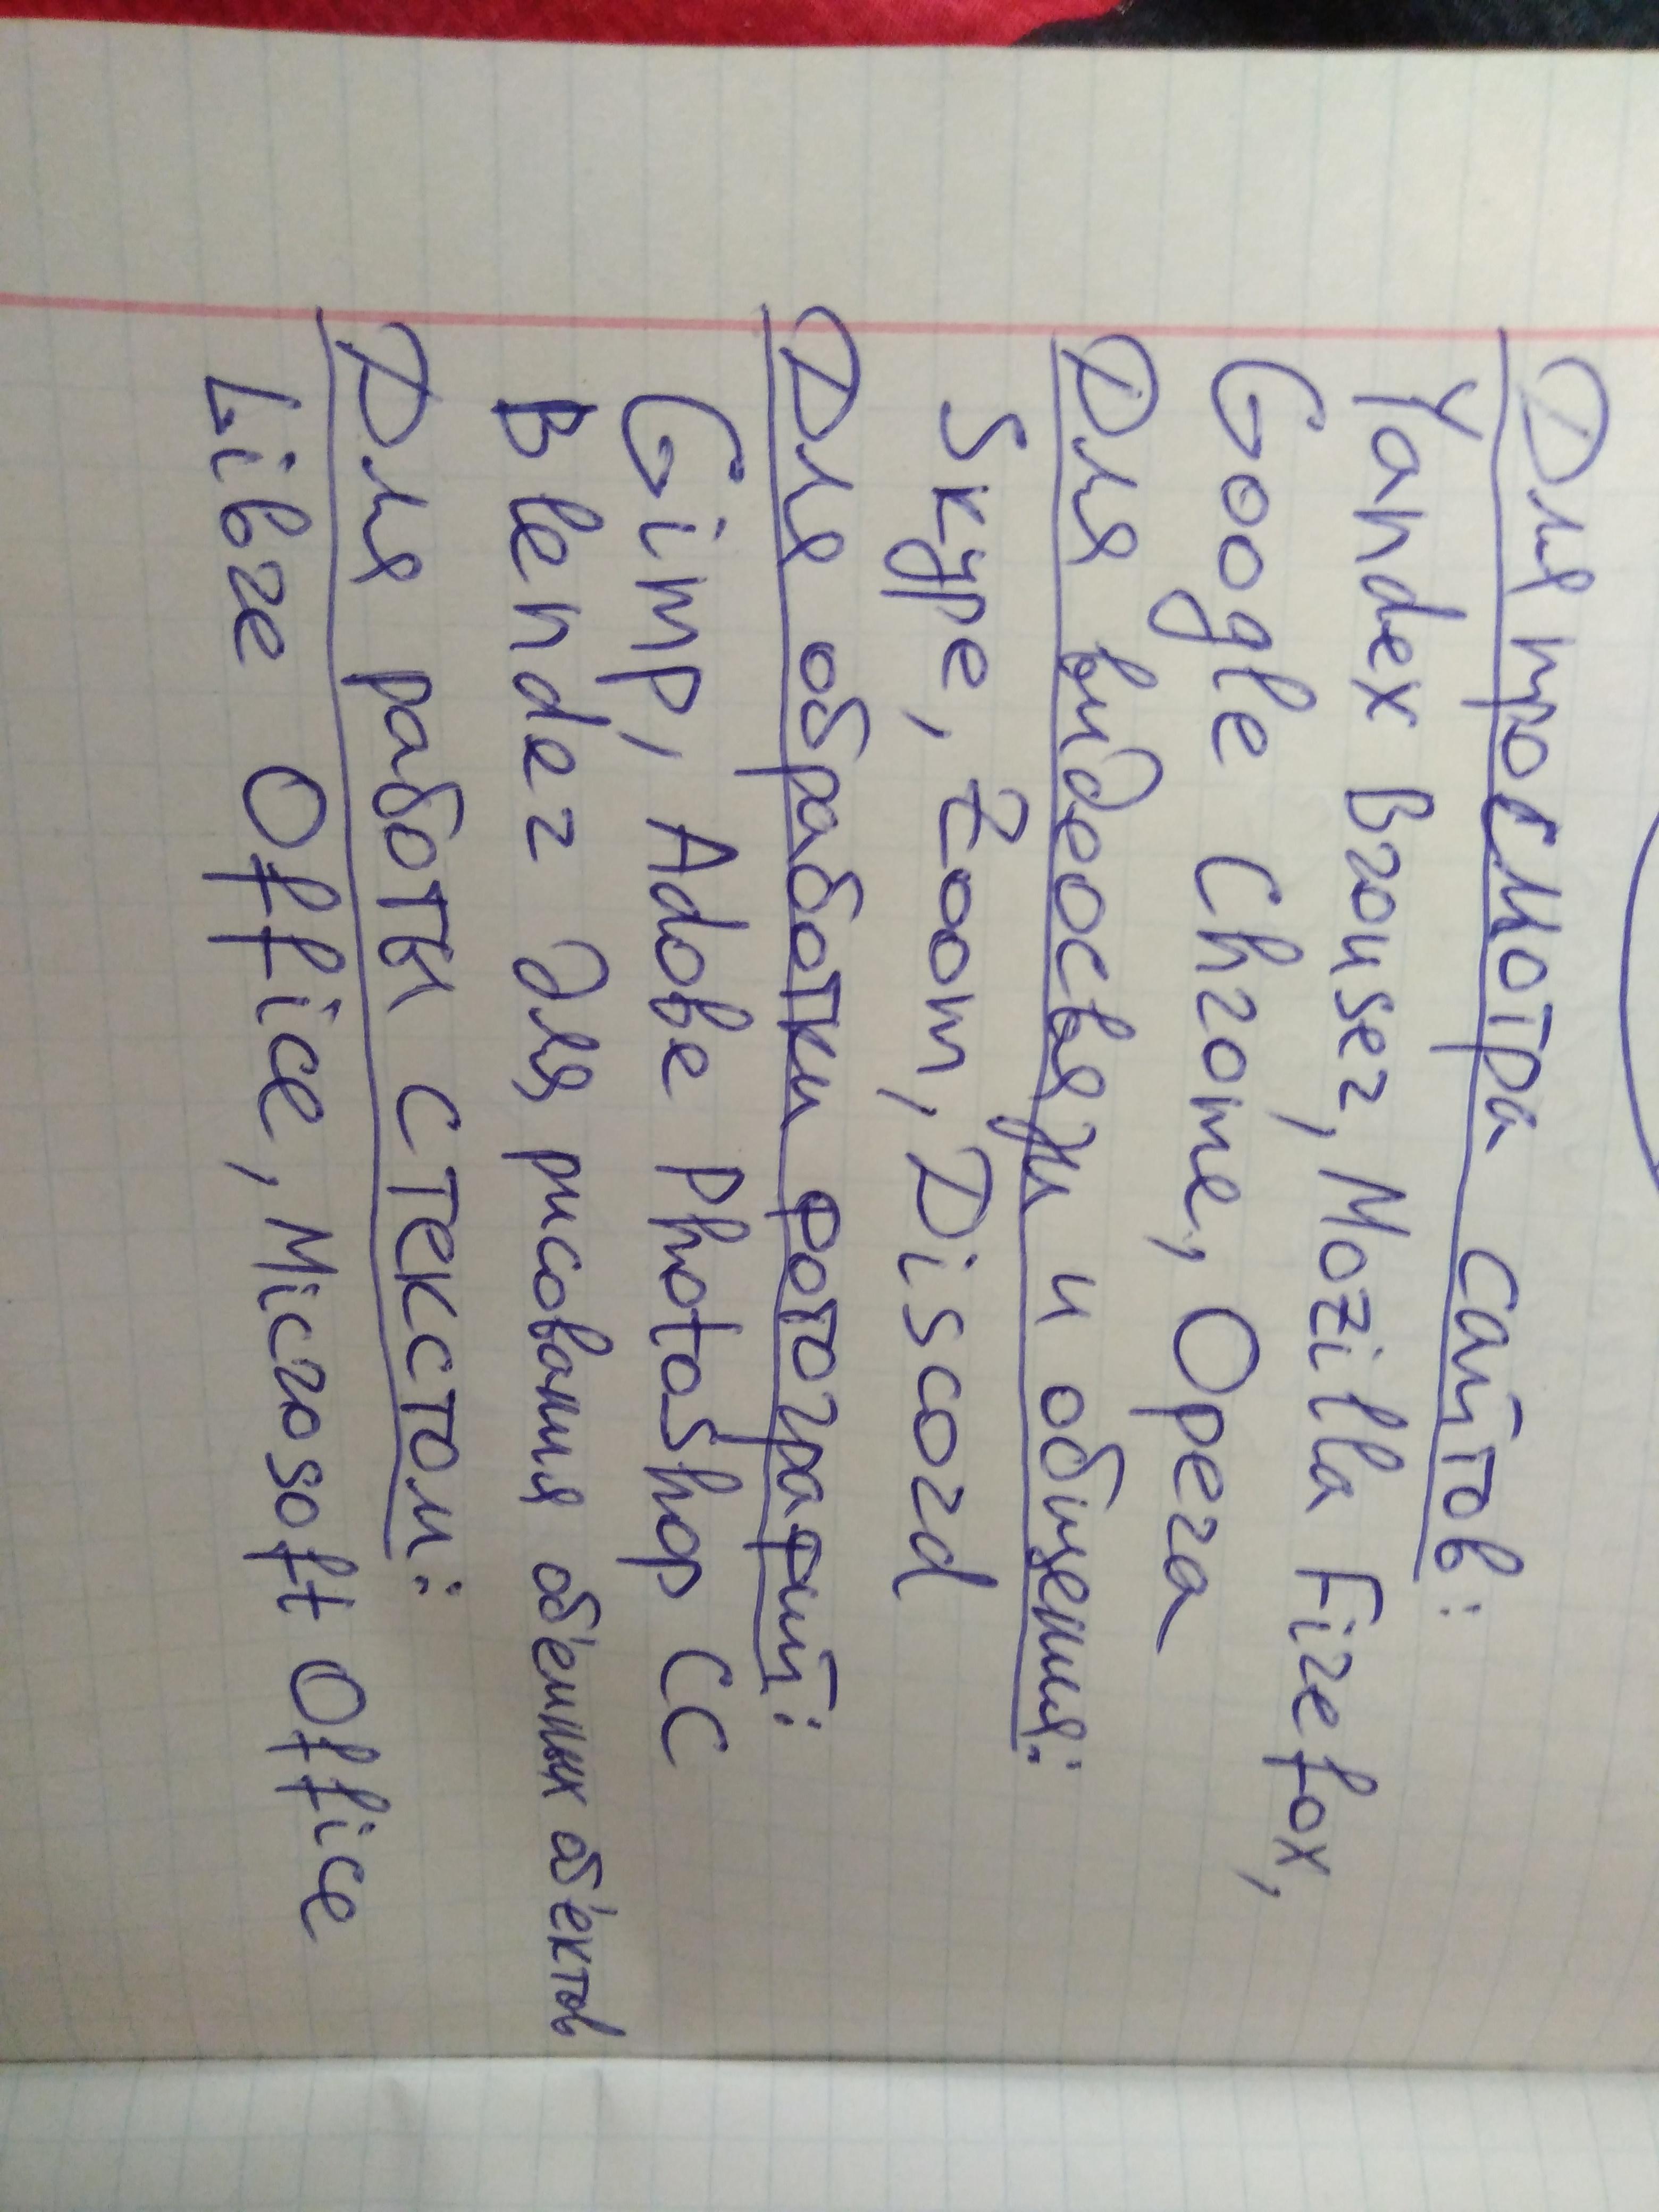 Для просмотра сайтов:
Yandex Brouser, Mozilla Firefox,
Google Chrome, Opera
Для видеосвязи и общения:
Skype, Zoom, Discord
Для обработки фотографий:
Gimp, Adobe Photoshop CC
Blender для рисования обёмных обёктов
Для работы с текстом:
Libre Office, Microsoft Office